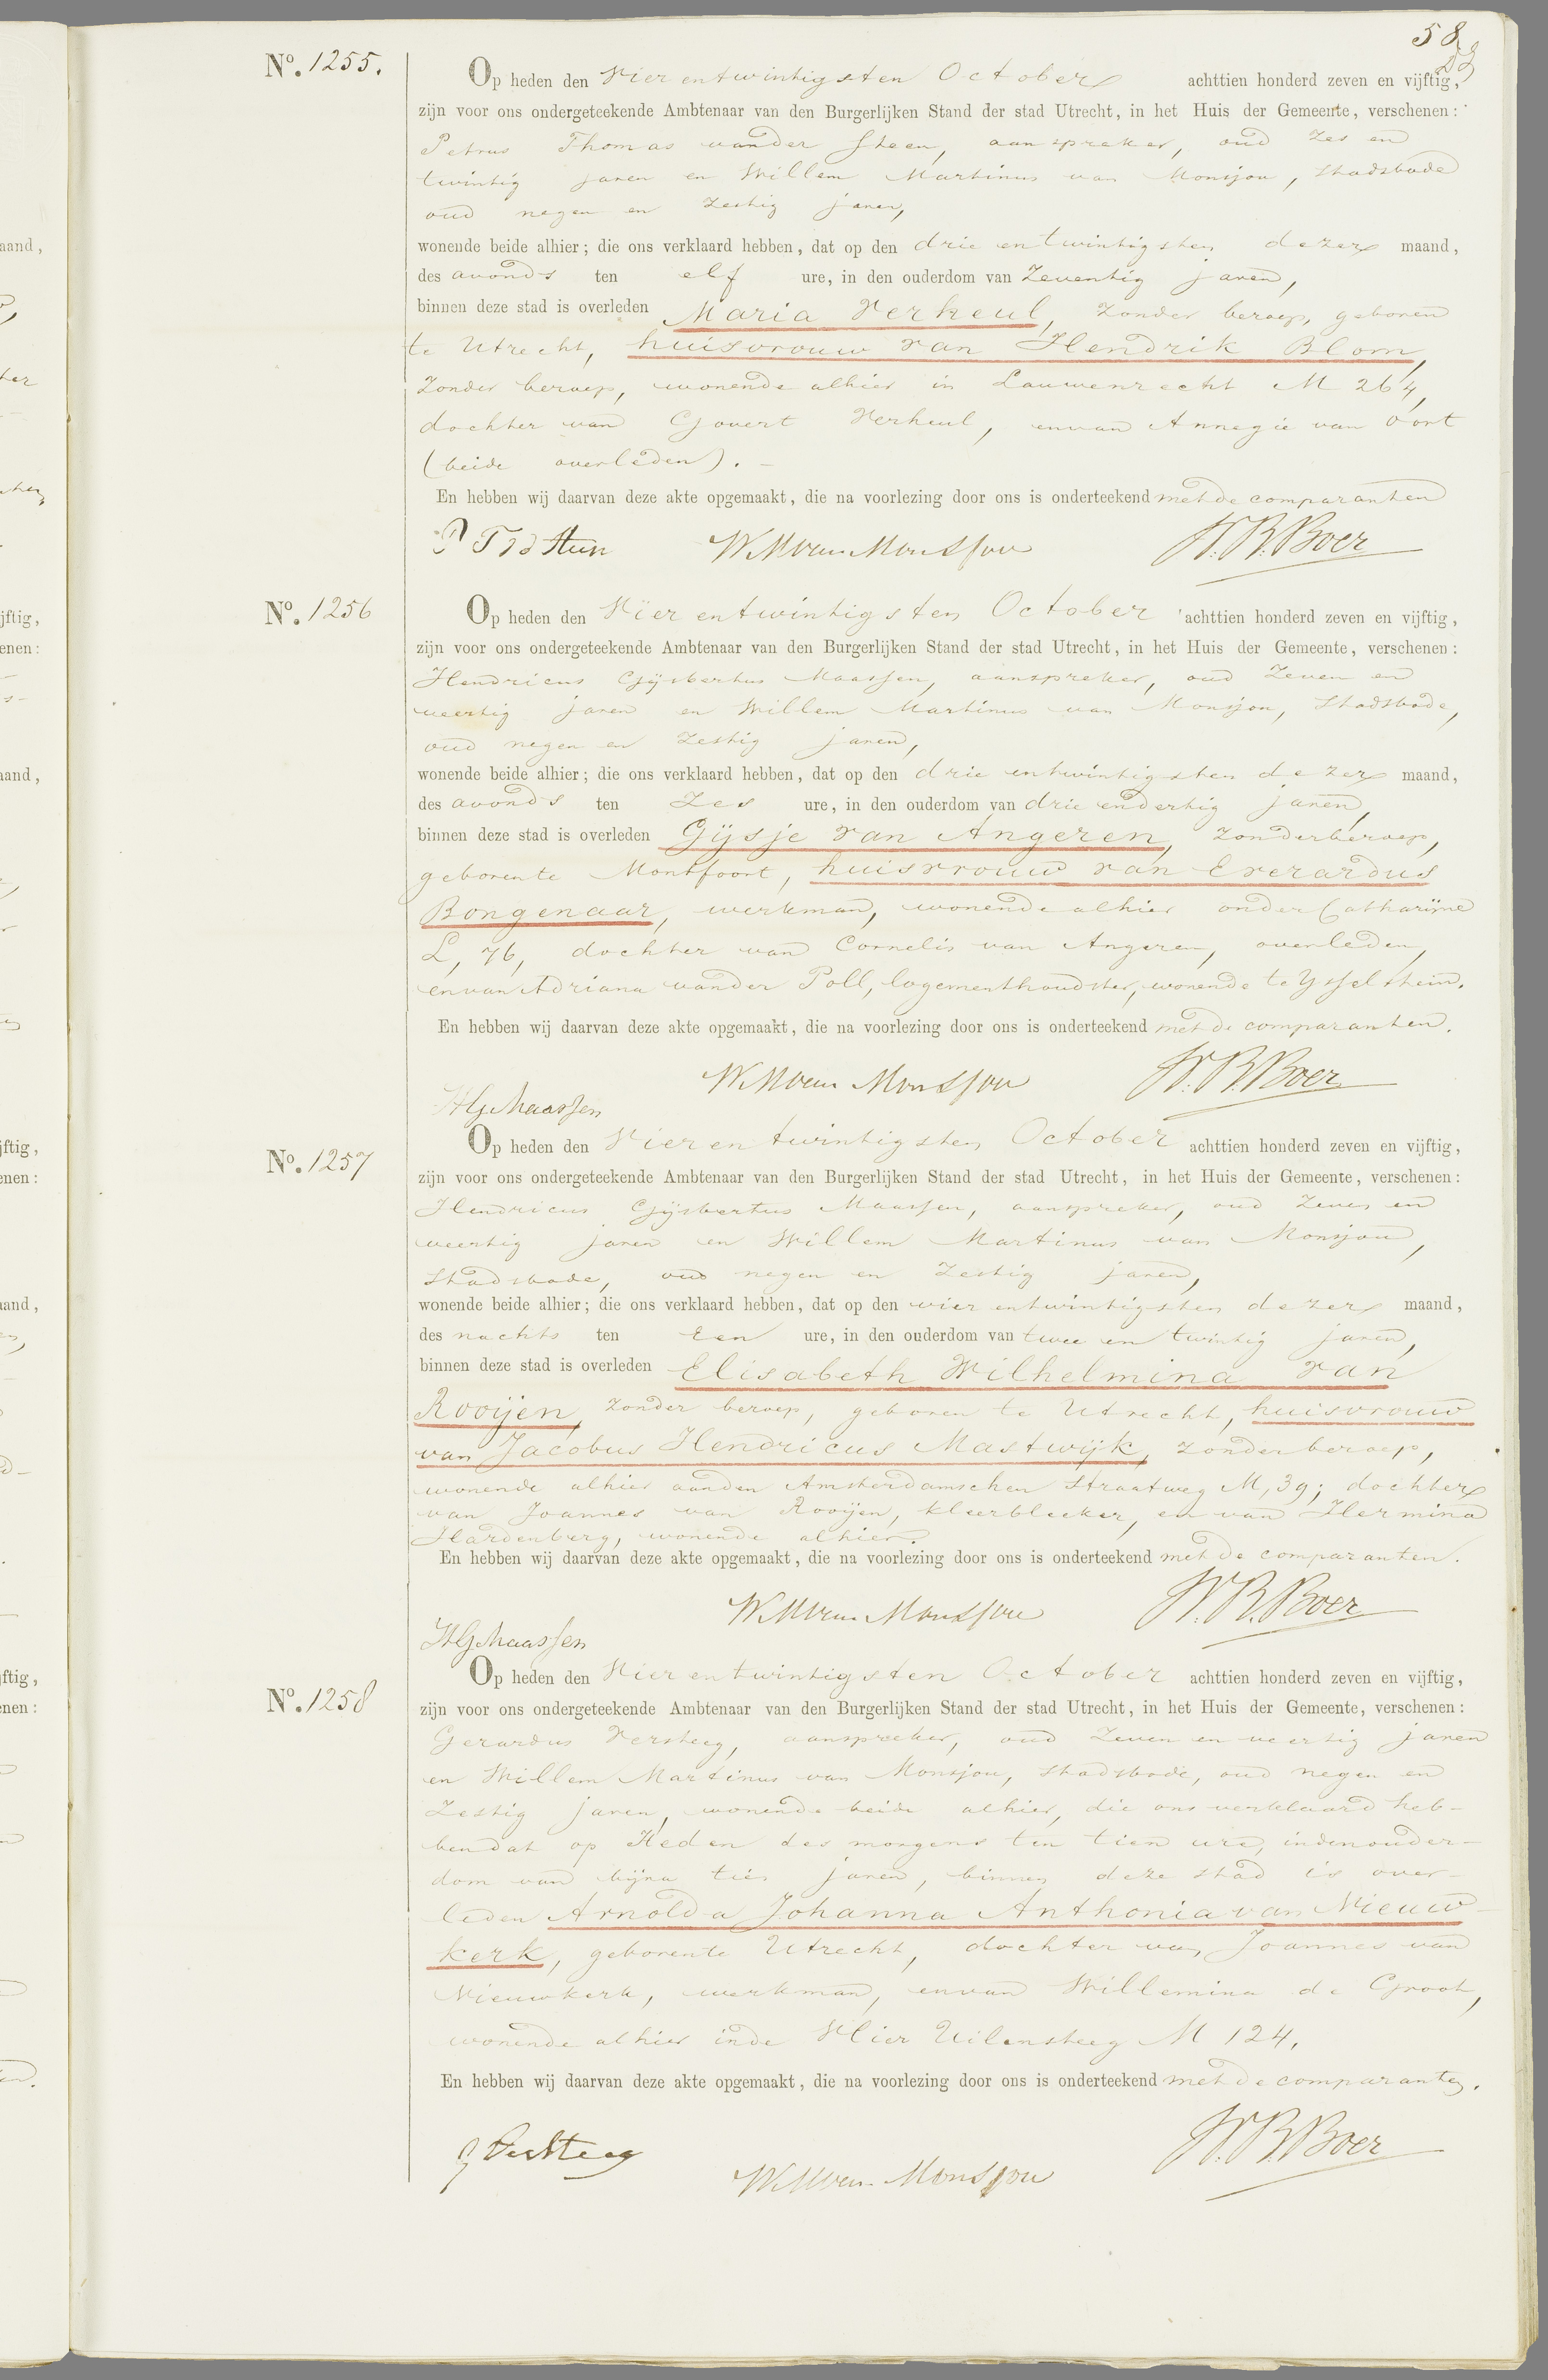 58
No. 1255.
Op heden den Vier en twintigsten October achttien honderd zeven en vijftig,
zijn voor ons ondergeteekende Ambtenaar van den Burgerlijken Stand der stad Utrecht, in het Huis der Gemeente, verschenen:
Petrus Thomas vander Steen, aanspreker, oud zes en
twintig jaren en Willem Martinus van Monsjou, Stadsbode
oud negen en zestig jaren,
wonende beide alhier; die ons verklaard hebben, dat op den drie en twintigsten dezer maand,
des avonds ten elf ure, in den ouderdom van Zeventig jaren,
binnen deze stad is overleden Maria Verkeul, zonder beroep, geboren
te Utrecht, huisvrouw van Hendrik Blom,
zonder beroep, wonende alhier in Lauwenrecht M 264,
dochter van Govert Verheul, en van Annegie van Oort
(beide overleden). -
En hebben wij daarvan deze akte opgemaakt, die na voorlezing door ons is onderteekend met de comparanten
P T vd Steen WM van Monsjou W. B. Boer
No. 1256
Op heden den Vier en twintigsten October achttien honderd zeven en vijftig,
zijn voor ons ondergeteekende Ambtenaar van den Burgerlijken Stand der stad Utrecht, in het Huis der Gemeente, verschenen:
Hendricus Gijsbertus Maassen, aanspreker, oud Zeven en
veertig jaren en Willem Martinus van Monsjou, Stadsbode,
oud negen en zestig jaren,
wonende beide alhier; die ons verklaard hebben, dat op den drie en twintigsten dezer maand,
des avonds ten Zes ure, in den ouderdom van drie en dertig jaren,
binnen deze stad is overleden Gijsje van Angeren, zonder beroep,
geboren te Montfoort, huisvrouw van Everardus
Bongenaar, werkman, wonende alhier onder Catharijne
L, 76, dochter van Cornelis van Angeren, overleden,
en van Adriana vander Poll, logementhoudster, wonende te Ysselstein.
En hebben wij daarvan deze akte opgemaakt, die na voorlezing door ons is onderteekend met de comparanten.
WM van Monsjou W. B. Boer
HG Maassen
No. 1257
Op heden den Vier en twintigsten October achttien honderd zeven en vijftig,
zijn voor ons ondergeteekende Ambtenaar van den Burgerlijken Stand der stad Utrecht, in het Huis der Gemeente, verschenen:
Hendricus Gijsbertus Maassen, aanspreker, oud Zeven en
veertig jaren en Willem Martinus van Monsjou,
Stadsbode, oud negen en Zestig jaren,
wonende beide alhier; die ons verklaard hebben, dat op den vier en twintigsten dezer maand,
des nachts ten Een ure, in den ouderdom van twee en twintig jaren,
binnen deze stad is overleden Elisabeth Wilhelmina van
Rooijen, zonder beroep, geboren te Utrecht, huisvrouw
van Jacobus Hendricus Mastwijk, zonder beroep,
wonende alhier aan den Amsterdamschen Straatweg M, 39; dochter
van Joannes van Rooijen, kleerbleeker, en van Hermina
Hardenberg, wonende alhier.
En hebben wij daarvan deze akte opgemaakt, die na voorlezing door ons is onderteekend met de comparanten.
WM van Monsjou W. B. Boer
HG Maassen
No. 1258
Op heden den Vier en twintigsten October achttien honderd zeven en vijftig,
zijn voor ons ondergeteekende Ambtenaar van den Burgerlijken Stand der stad Utrecht, in het Huis der Gemeente, verschenen:
Gerardus Versteeg, aanspreker, oud Zeven en veertig jaren
en Willem Martinus van Monsjou, Stadsbode, oud negen en
Zestig jaren, wonende beide alhier, die ons verklaard heb-
ben dat op Heden des morgens ten tien ure, in den ouder-
dom van bijna tien jaren, binnen deze stad is over-
leden Arnolda Johanna Anthonia van Nieuw-
kerk, geboren te Utrecht, dochter van Joannes van
Nieuwkerk, werkman, en van Willemina de Groot,
wonende alhier in de Vlier Uilensteeg M 124.
En hebben wij daarvan deze akte opgemaakt, die na voorlezing door ons is onderteekend met de comparanten.
G Versteeg WM van Monsjou W. B. Boer